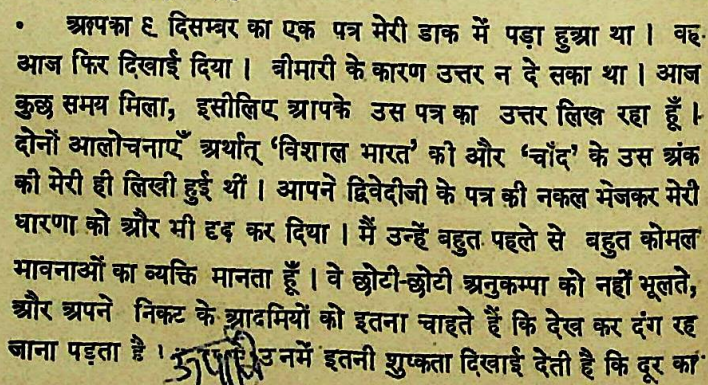 • आपका ६ दिसम्बर का एक पत्र मेरी डाक में पड़ा हुआ था । वह
आज फिर दिखाई दिया । बीमारी के कारण उत्तर न दे सका था । आज
कुछ समय मिला, इसीलिए आपके उस पत्र का उत्तर लिख रहा हूँ ।
दोनों आलोचनाएँ अर्थात् ‘विशाल भारत’ की और ‘चाँद’ के उस अंक
की मेरी ही लिखी हुई थीं । आपने द्विवेदीजी के पत्र की नकल भेजकर मेरी
धारणा को और भी दृढ़ कर दिया । मैं उन्हें बहुत पहले से बहुत कोमल
भावनाओं का व्यक्ति मानता हूँ । वे छोटी-छोटी अनुकम्पा को नहीं भूलते,
और अपने निकट के आदमियों को इतना चाहते हैं कि देख कर दंग रह
जाना पड़ता है । उनमें इतनी शुष्कता दिखाई देती है कि दूर का